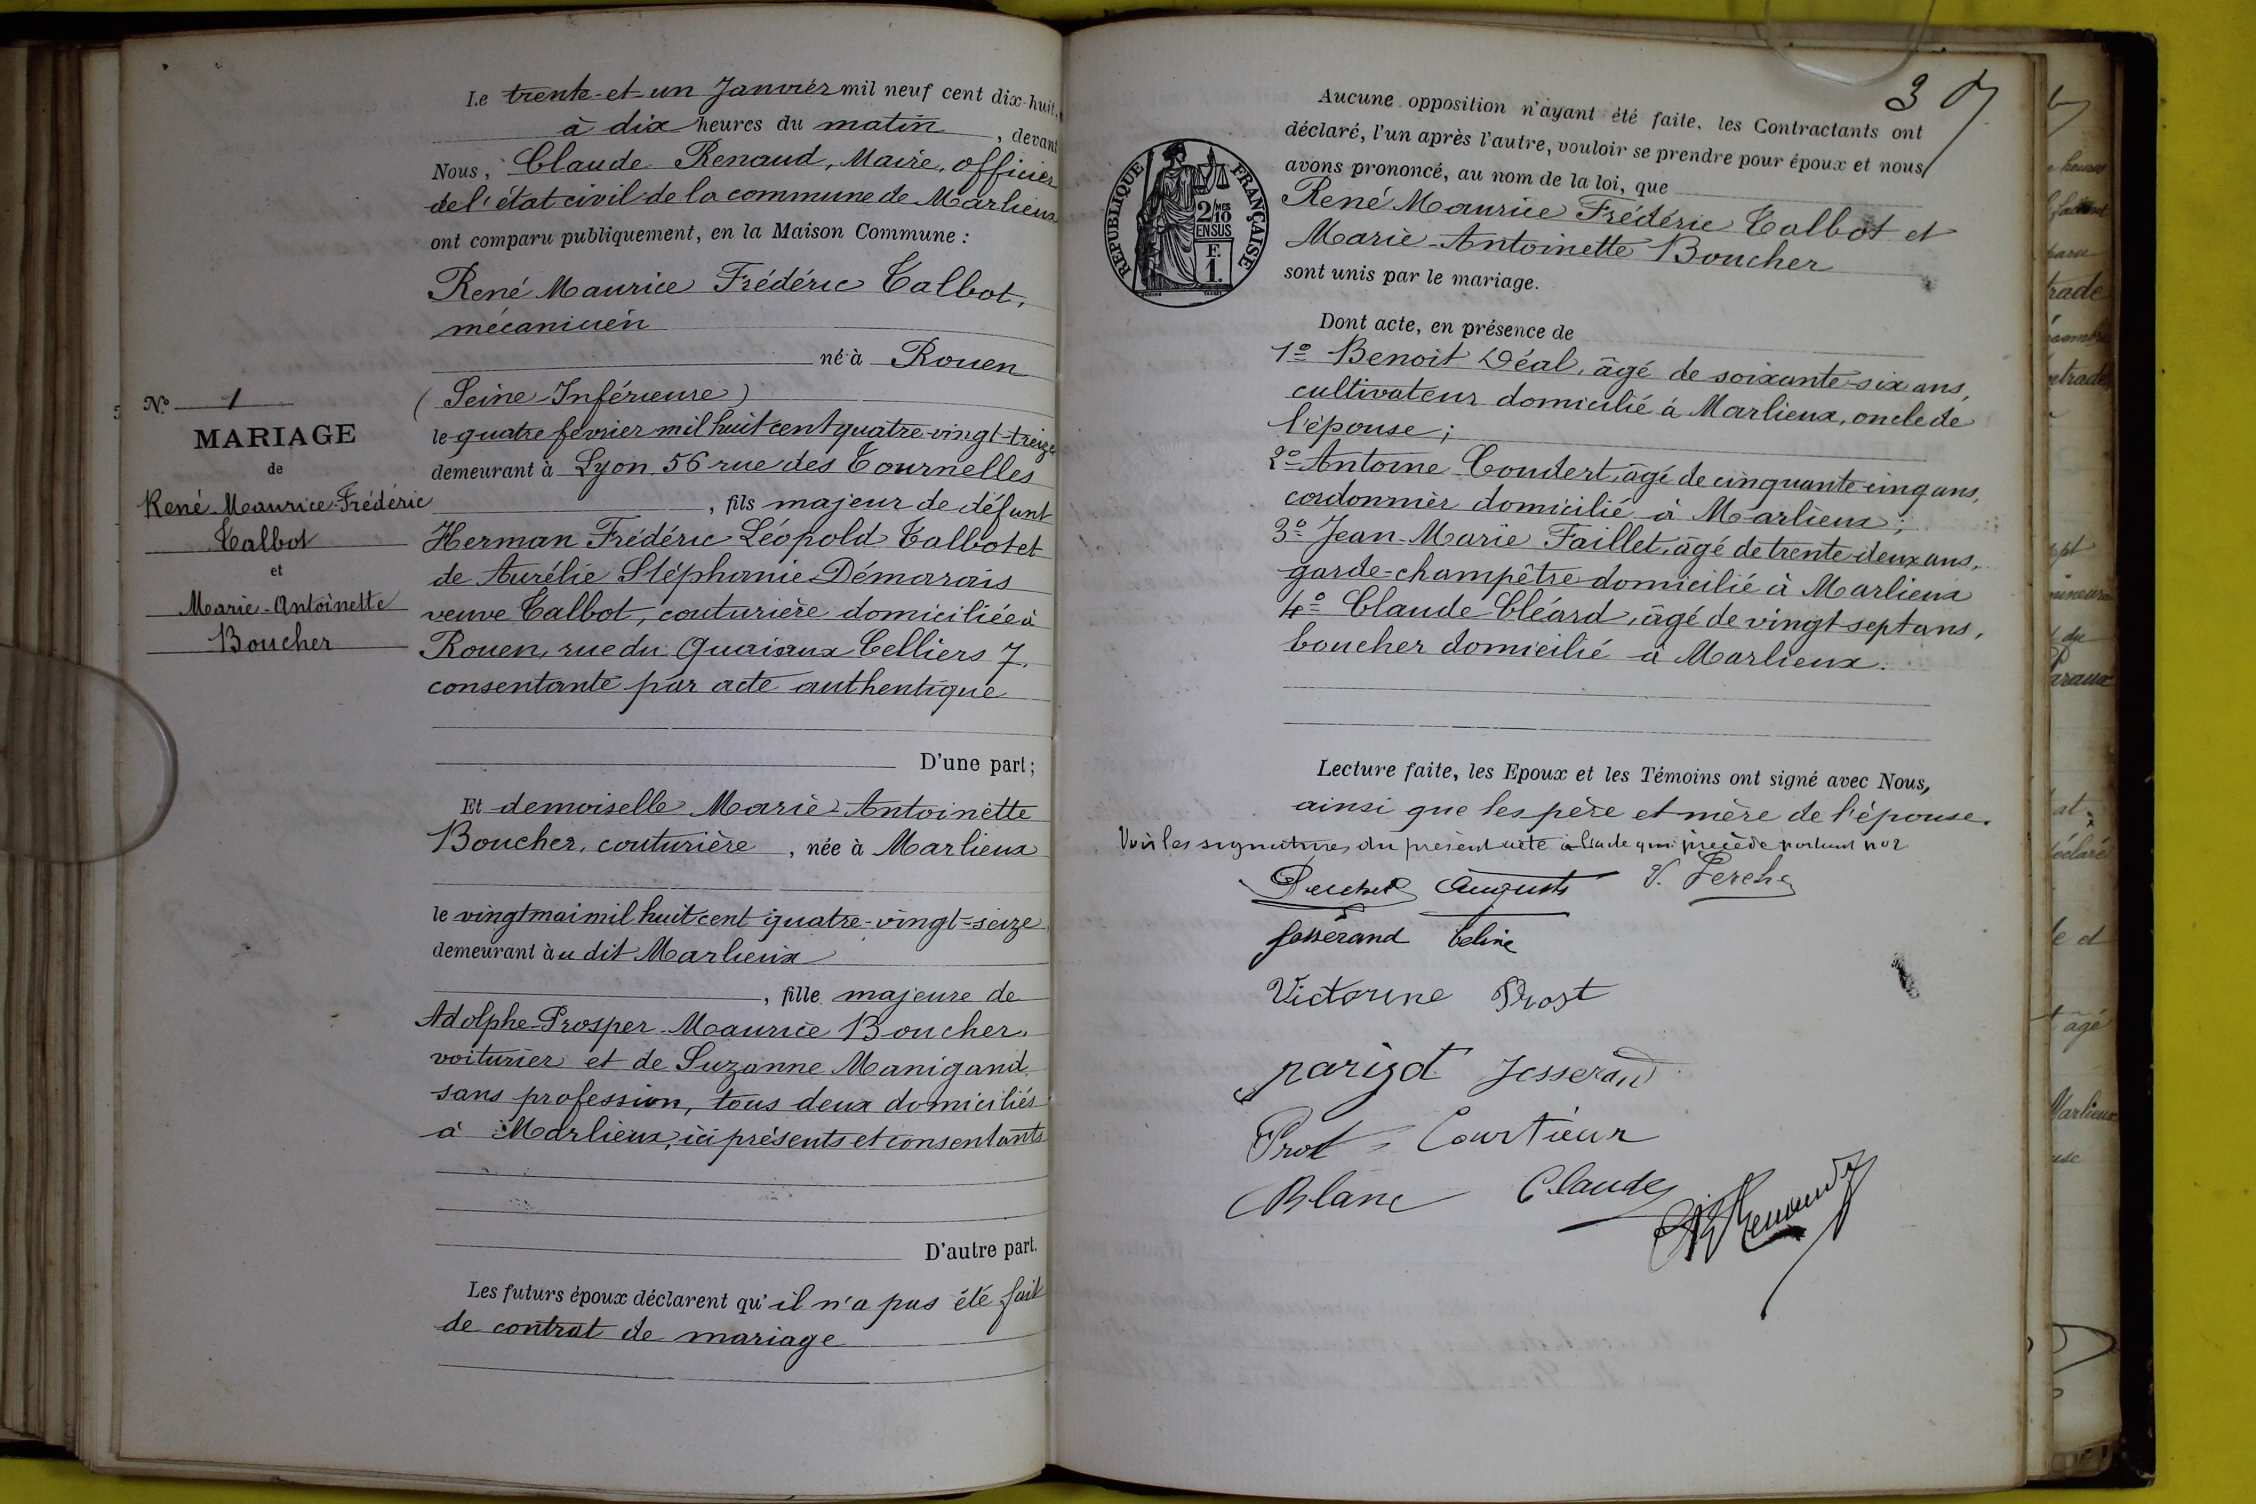 Le trente-et-un Janvier mil neuf cent dix-huit,
à dix heures du matin, devant
Nous, Claude Renaud, Maire, officier
de l'état civil de la commune de Marlieux
ont comparu publiquement, en la Maison Commune :
René Maurice Frédéric Talbot,
mécanicien
né à Rouen
(Seine-Inférieure)
le quatre février mil huit cent quatre-vingt-treize
demeurant à Lyon, 56 rue des Tournelles
, fils majeur de défunt
Herman Frédéric Léopold Talbot et
de Aurélie Stéphanie Démarais
veuve Talbot, couturière domiciliée à
Rouen, rue du Quai aux Celliers 7,
consentante par acte authentique
D'une part ;
Et demoiselle Marie-Antoinette
Boucher, couturière, née à Marlieux
le vingt mai mil huit cent quatre-vingt-seize
demeurant àu dit Marlieux
, fille majeure de
Adolphe-Prosper-Maurice Boucher,
voiturier et de Suzanne Manigand
sans profession, tous deux domiciliés
à Marlieux, ici présents et consentants
D'autre part.
Les futurs époux déclarent qu'il n'a pas été fait
de contrat de mariage
No. 1
MARIAGE
de
René-Maurice-Frédéric
Talbot
et
Marie-Antoinette
Boucher
3
Aucune opposition n'ayant été faite, les Contractants ont
déclaré, l'un après l'autre, vouloir se prendre pour époux et nous
avons prononcé, au nom de la loi, que
René Maurice Frédéric Talbot et
Marie-Antoinette Boucher
sont unis par le mariage.
RÉPUBLIQUE FRANÇAISE
2/MES
10
EN SUS
F.
1.
Dont acte, en présence de
1o Benoit Déal, âgé de soixante-six ans,
cultivateur domicilié à Marlieux, oncle de
l'épouse ;
2o Antoine Coudert, âgé de cinquante-cinq ans,
cordonnier domicilié à Marlieux ;
3o Jean-Marie Faillet, âgé de trente-deux ans,
garde-champêtre domicilié à Marlieux
4o Claude Cléard, âgé de vingt-sept ans,
boucher domicilié à Marlieux.
Lecture faite, les Epoux et les Témoins ont signé avec Nous,
ainsi que les père et mère de l'épouse.
Voir les signatures du présent acte à l'acte qui précède portant no 2
Auguste
Josserand Celine
Victorine Prost
parizot Josserand
Prot Courtieux
Blanc Claude
Renaud